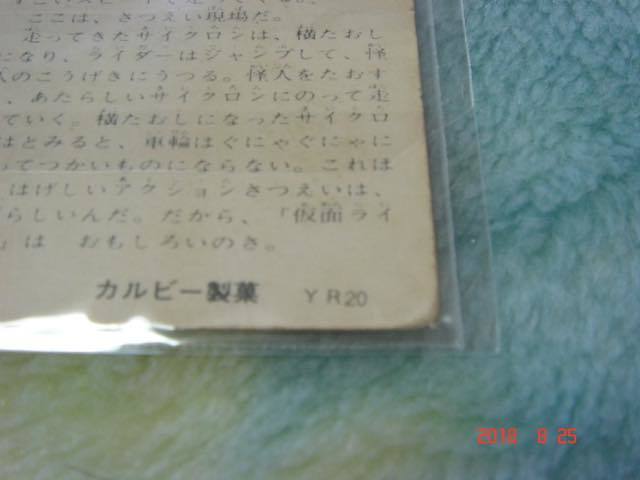 ここは、さつえい現場だ。
走ってきたサイクロンは、横たおし
になり、ライダーはジャンプして、怪
人のこうげきにうつる。怪人をたおす
、あたらしいサイクロンにのって走
ていく。横たおしになったサイクロ
はとみると、車輪はぐにゃぐにゃに
ってつかいものにならない。これは
はげしいアクションさつえいは、
らしいんだ。だから、「仮面ライ
」は おもしろいのさ。
カルビー製菓 YR20
2010 8 25